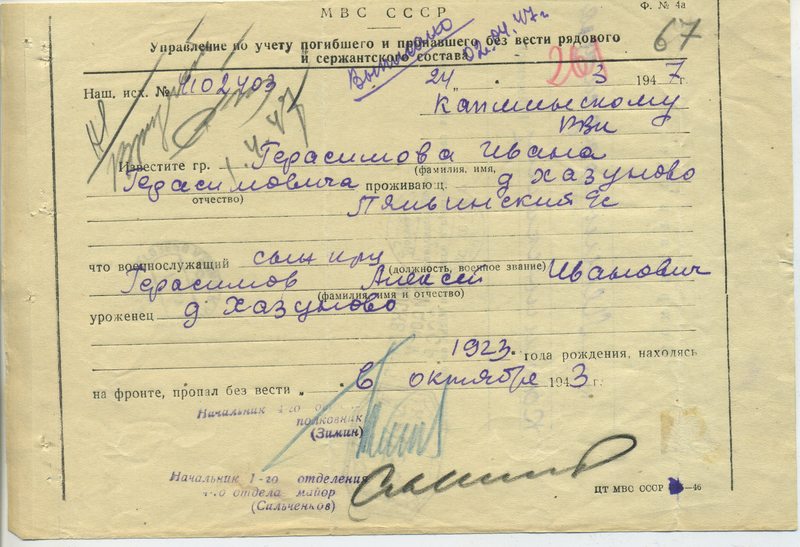 МВС СССР
Ф. № 4а
67
Управление по учету погибшего и пропавшего без вести рядового
и сержантского состава
Выписано 02.04.47г
Наш. исх. № 1102403
24 „ 3 1947 г
261
РВК
1.4.47
Известите гр. Герасимова Ивана
(фамилия, имя,
Герасимовича проживающ. д Хазуново
отчество)
что военнослужащий сын
(должность, военное звание)
Герасимов Алексей Иванович
(фамилия, имя и отчество)
уроженец д Хазуново
1923 года рождения, находясь
на фронте, пропал без вести в октябре 1943 г.
Начальник 4-го
полковник
(Зимин)
Начальник 1-го отделения
4-го отдела майор
(Сильченков)
ЦТ МВС СССР —46